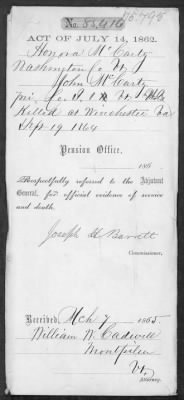 No. 83,416
ACT OF JULY 14, 1862.
Honora McCarty
Washington Co. Vt.
John McCarty
Killed at Winchester Va
Sep 19, 1864
Pension Office,
186
Respectfully referred to the Adjutant
General, for official evidence of service
and death.
Joseph H Barrett
Commissioner.
Received, Mch 7 1865
William W. Cadwell
Montpelier
Vt.
Attorney.